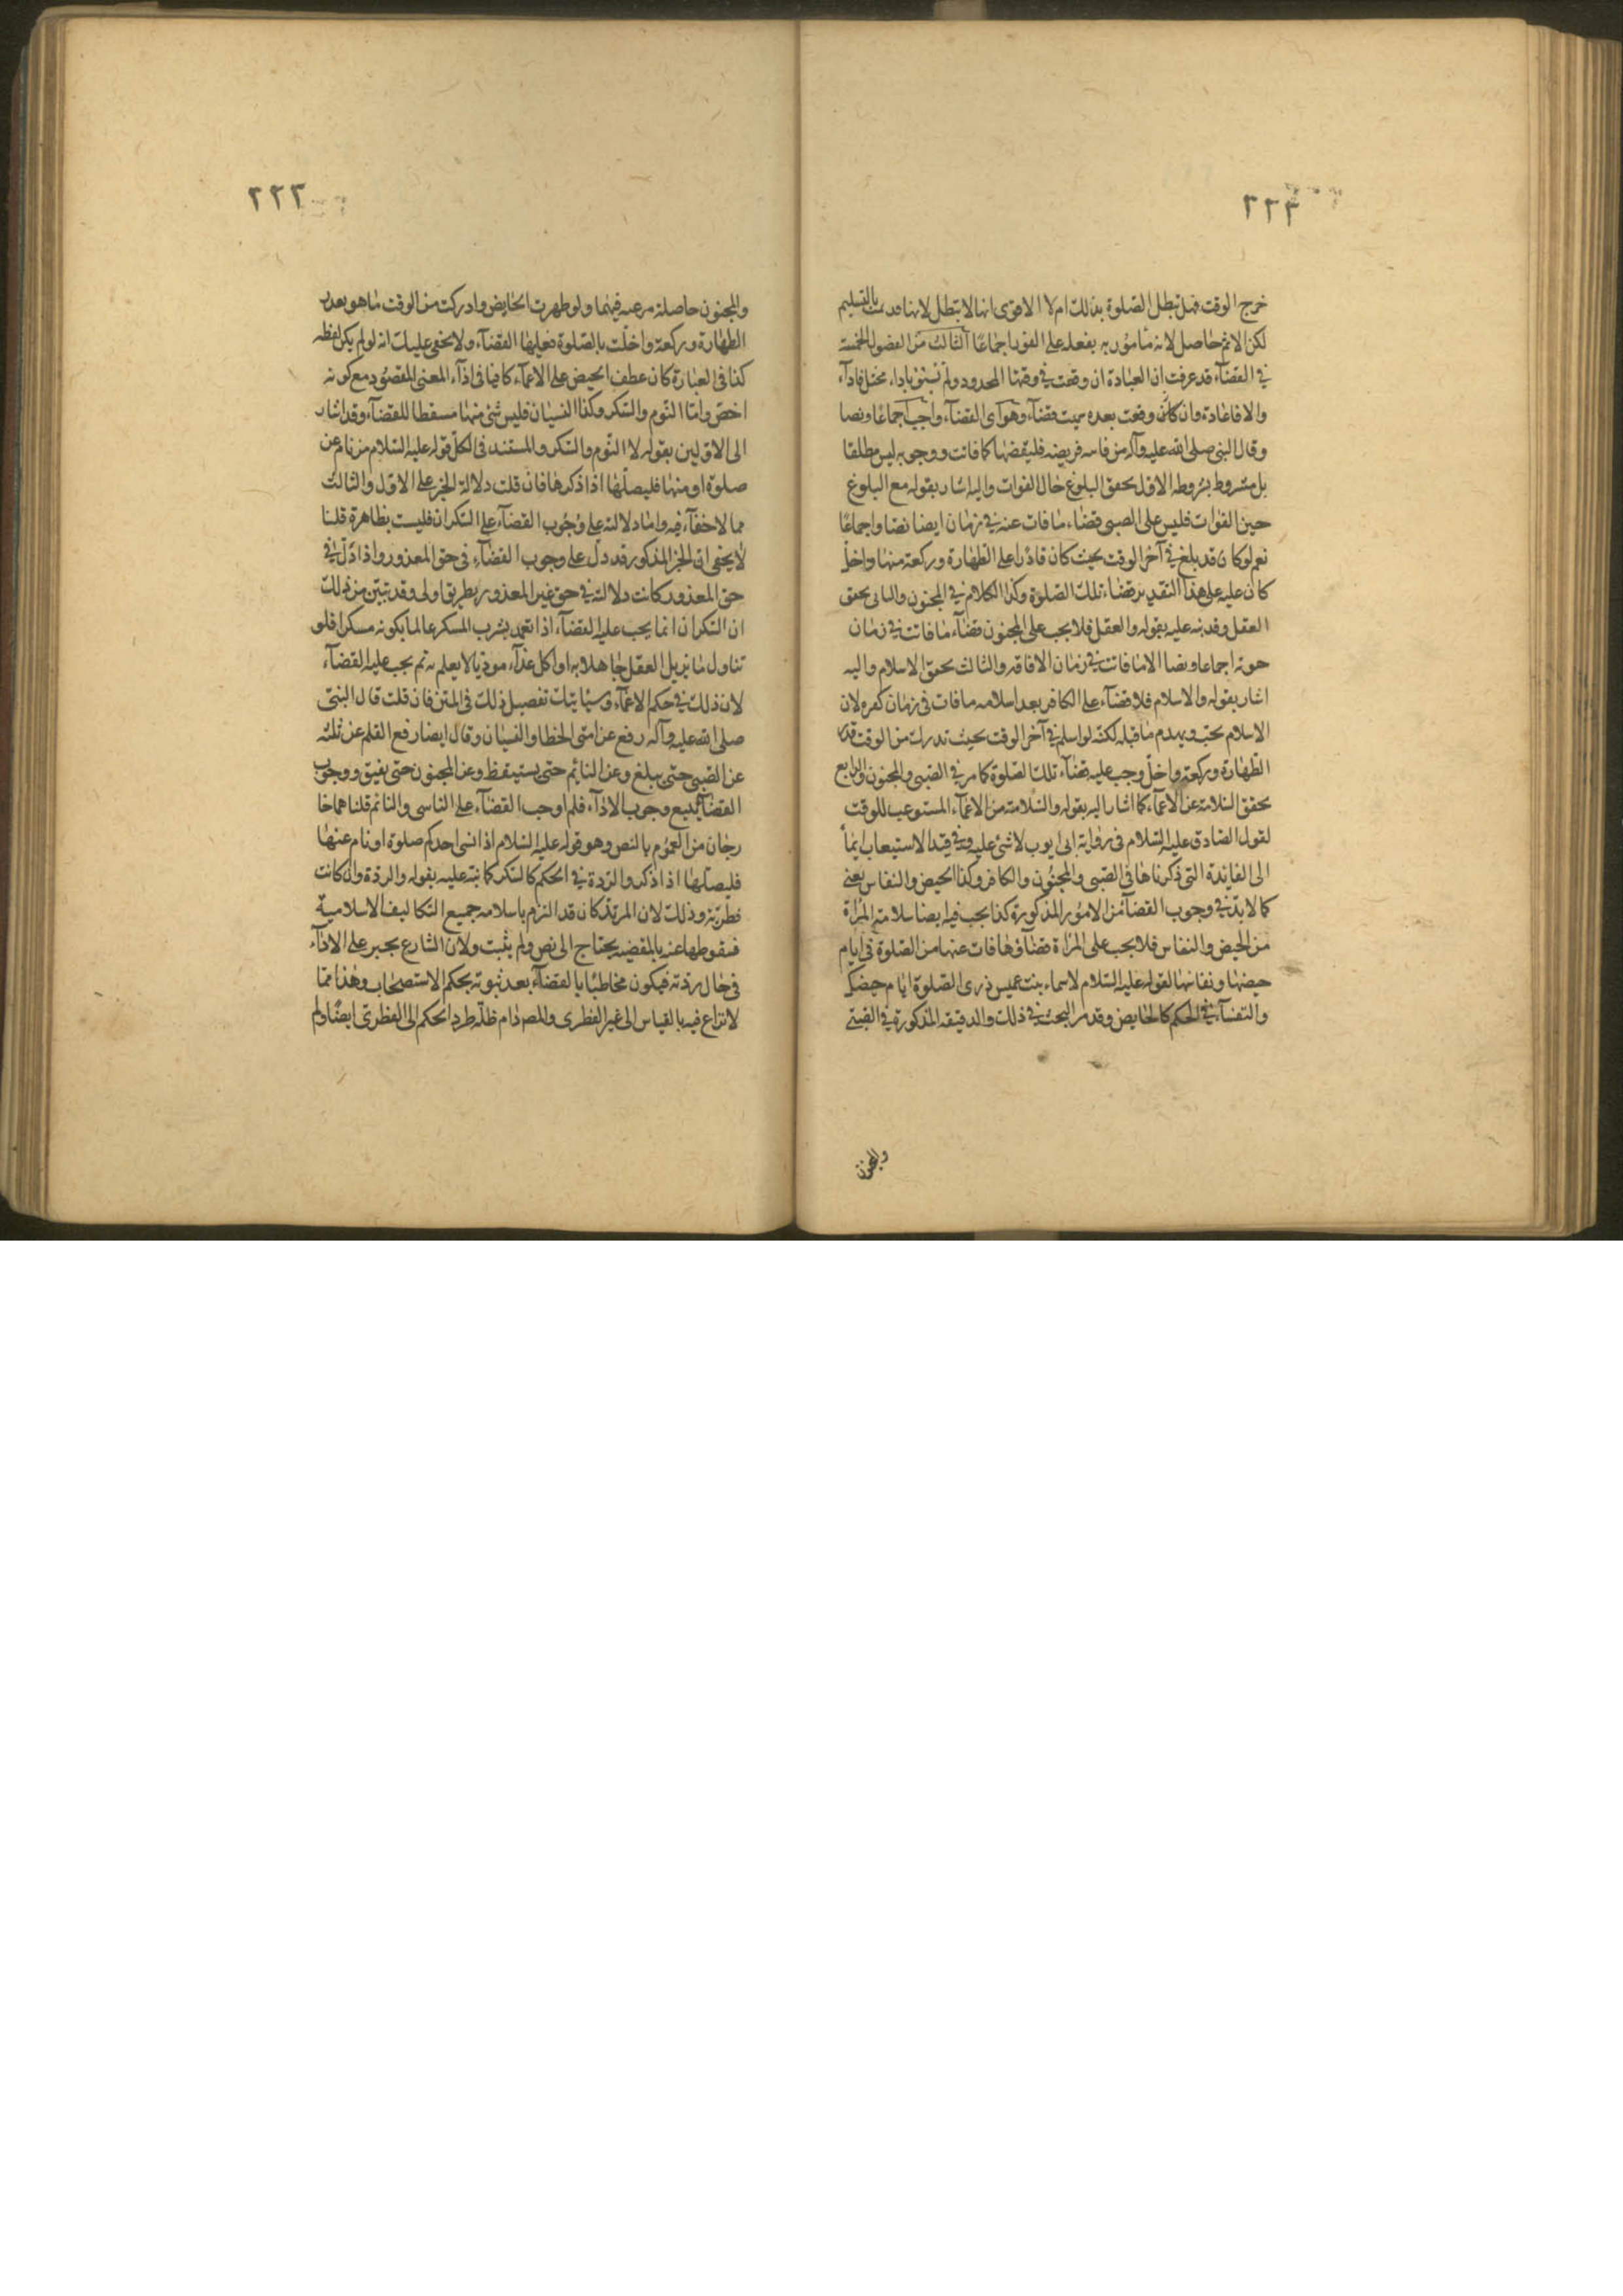 ٢٢٣
خرج الوقت فهل تبطل الصلوة بذلك ام لا الاقوى انها لا تبطل لانها قد تمت بالتسليم
لكن الاثم حاصل لانه مأمور به بفعله على الفور اجماعا الثالث من الفصول الخمسة
في القضآء قد عرفت ان العبادة ان وقعت في وقتها المحدود ولم تسبق باداء مختل فاداء
والا فاعادة وان كان وقعت بعده سميت قضآء وهو اى القضآء واجب اجماعا ونصا
وقال النبى صلى الله عليه وآله من فاته فريضة فليقضها كما فاتت ووجوبه ليس مطلقا
بل مشروط بشروط الاول تحقق البلوغ حال الفوات واليه اشار بقوله مع البلوغ
حين الفوات فليس على الصبى قضاء ما فات عنه في زمان ايضا نصا واجماعا
نعم لو كان قد بلغ في آخر الوقت بحيث كان قادرا على الطهارة وركعة منها واخل
كان عليه على هذا التقدير قضاء تلك الصلوة وكذا الكلام في المجنون والثانى تحقق
العقل وقد نبه عليه بقوله والعقل فلا يجب على المجنون قضآء ما فاتت في زمان
جنونه اجماعا ونصا الا ما فاتت في زمان الافاقة والثالث تحقق الاسلام واليه
اشار بقوله والاسلام فلا قضآء على الكافر بعد اسلامه ما فات في زمان كفره لان
الاسلام يجب ويهدم ما قبله لكنه لو اسلم في آخر الوقت بحيث تدرك من الوقت قدر
الطهارة وركعة واخل وجب عليه قضآء تلك الصلوة كما مر في الصبى والمجنون والرابع
تحقق السلامة عن الاغمآء كما اشار اليه بقوله والسلامة من الاغمآء المستوعب للوقت
لقول الصادق عليه السلام في رواية ابى ايوب لا شئ عليه وفي قيد الاستيعاب ايمأ
الى الفايدة التى ذكرناها فى الصبى والمجنون والكافر وكذا الحيض والنفاس يعنى
كما لابد في وجوب القضآء من الامور المذكورة كذا يجب فيه ايضا سلامة المراة
من الحيض والنفاس فلا يجب على المراة قضآء ما فات عنها من الصلوة فى ايام
حيضها ونفاسها لقوله عليه السلام لاسماء بنت عميس ذرى الصلوة ايام حيضك
والنفسآء في الحكم كالحايض وقد مر البحث في ذلك والدقيقة المذكورة في الصبى
والمجنون
٢٢٣
والمجنون حاصلة مرعية فيهما ولو طهرت الحايض وادركت من الوقت ما هو بعدد
الطهارة وركعة واخلت بالصلوة فعليها القضآء ولا يخفى عليك انه لو لم يكن لفظة
كذا فى العبارة كان عطف الحيض على الاغمآء كافيا فى اداء المعنى المقصود مع كونه
اخصر واما النوم والسكر وكذا النسيان فليس شئ منها مسقطا للقضآء وقد اشار
الى الاولين بقوله لا النوم والسكر والمستند فى الكل قوله عليه السلام من نام عن
صلوة او منها فليصلها اذا ذكرها فان قلت دلالة الخبر على الاول والثالث
مما لا خفآء فيه واما دلالته على وجوب القضآء على السكران فليست بظاهرة قلنا
لا يخفى ان الخبر المذكور قد دل على وجوب القضآء فى حق المعذور واذا دل في
حق المعذور كانت دلالته في حق غير المعذور بطريق اولى وقد تبين من ذلك
ان السكران انما يجب عليه القضآء اذا تعمد بشرب المسكر عالما بكونه مسكرا فلو
تناول ما يزيل العقل جاهلا به او اكل غذآء موذيا لا يعلم به ثم يجب عليه القضآء
لان ذلك في حكم الاغمآء وسيأتيك تفصيل ذلك فى المتن فان قلت قال النبى
صلى الله عليه وآله رفع عن امتى الخطا والنسيان وقال ايضا رفع القلم عن ثلثة
عن الصبى حتى يبلغ وعن النايم حتى يستيقظ وعن المجنون حتى يفيق ووجوب
القضآء يتبع وجوب الادآء فلم اوجب القضآء على الناسى والنائم قلنا هما خا
رجان من العموم بالنص وهو قوله عليه السلام اذا نسى احدكم صلوة او نام عنها
فليصلها اذا ذكر والردة في الحكم كالسكر كما نبه عليه بقوله والردة وان كانت
فطرية وذلك لان المرتد كان قد التزم باسلامه جميع التكاليف الاسلامية
فسقوطها عنه بالمقضية يحتاج الى نص ولم يثبت ولان الشارع يجبر على الادآء
فى حال ردته فيكون مخاطبا بالقضآء بعد ثبوته بحكم الاستصحاب وهذا مما
لا نزاع فيه بالقياس الى غير الفطرى والمصـ دام ظله طرد الحكم الى الفطرى ايضا ولم